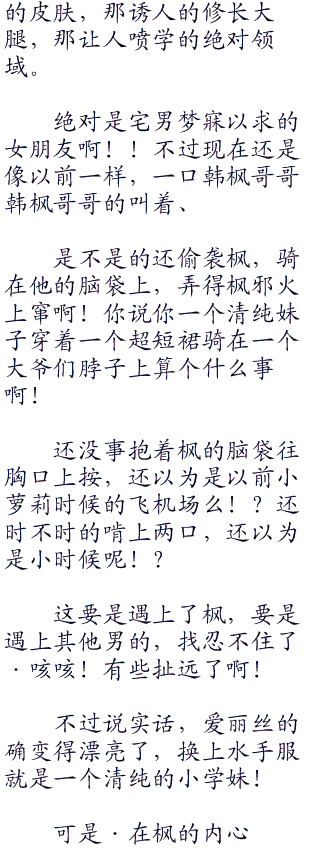 的皮肤，那诱人的修长大
腿，那让人喷学的绝对领
域。
绝对是宅男梦寐以求的
女朋友啊！！不过现在还是
像以前一样，一口韩枫哥哥
韩枫哥哥的叫着、
是不是的还偷袭枫，骑
在他的脑袋上，弄得枫邪火
上窜啊！你说你一个清纯妹
子穿着一个超短裙骑在一个
大爷们脖子上算个什么事
啊！
还没事抱着枫的脑袋往
胸口上按，还以为是以前小
萝莉时候的飞机场么！？还
时不时的啃上两口，还以为
是小时候呢！？
这要是遇上了枫，要是
遇上其他男的，找忍不住了
·咳咳！有些扯远了啊！
不过说实话，爱丽丝的
确变得漂亮了，换上水手服
就是一个清纯的小学妹！
可是·在枫的内心